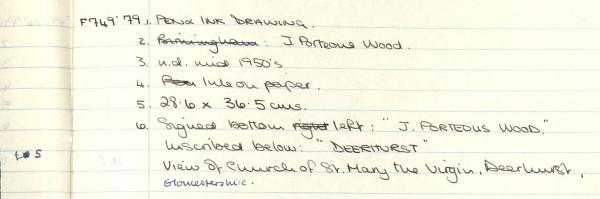 F749'79 1. PEN & INK DRAWING.
2. Birmingham: J. Porteous Wood.
3. n.d. mid 1950's
4. Pen Ink on paper.
5. 28.6 x 36.5 cms.
6. Signed bottom right left: "J. PORTEOUS WOOD."
Inscribed below: "DEERHURST"
View of Church of St. Mary the Virgin, Deerhurst,
Gloucestershire.
5